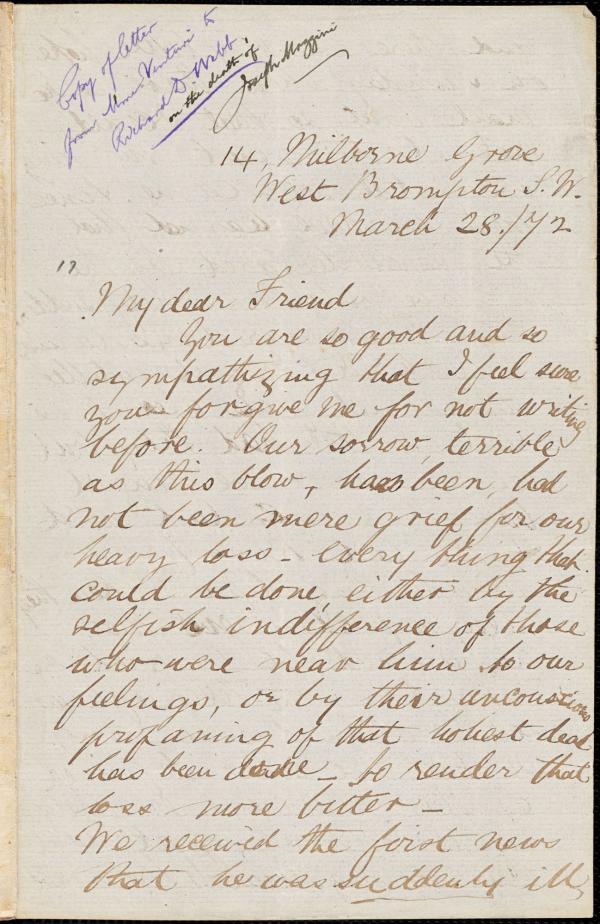 Copy of letter
from Mme Venturi to
Richard D. Webb
on the death of
Joseph Mazzini
14, Milborne Grove
West Brompton S.W.
March 28./72
My dear Friend
You are so good and so
sympathizing that I feel sure
you forgive me for not writing
before. Our sorrow, terrible
as this blow, has been, had
not been mere grief for our
heavy loss - every thing that
could be done either by the
selfish indifference of those
who were near him to our
feelings, or by their unconscious
profaning of that holiest dead
has been done - to render that
loss more bitter -
We received the first news
that he was suddenly ill,